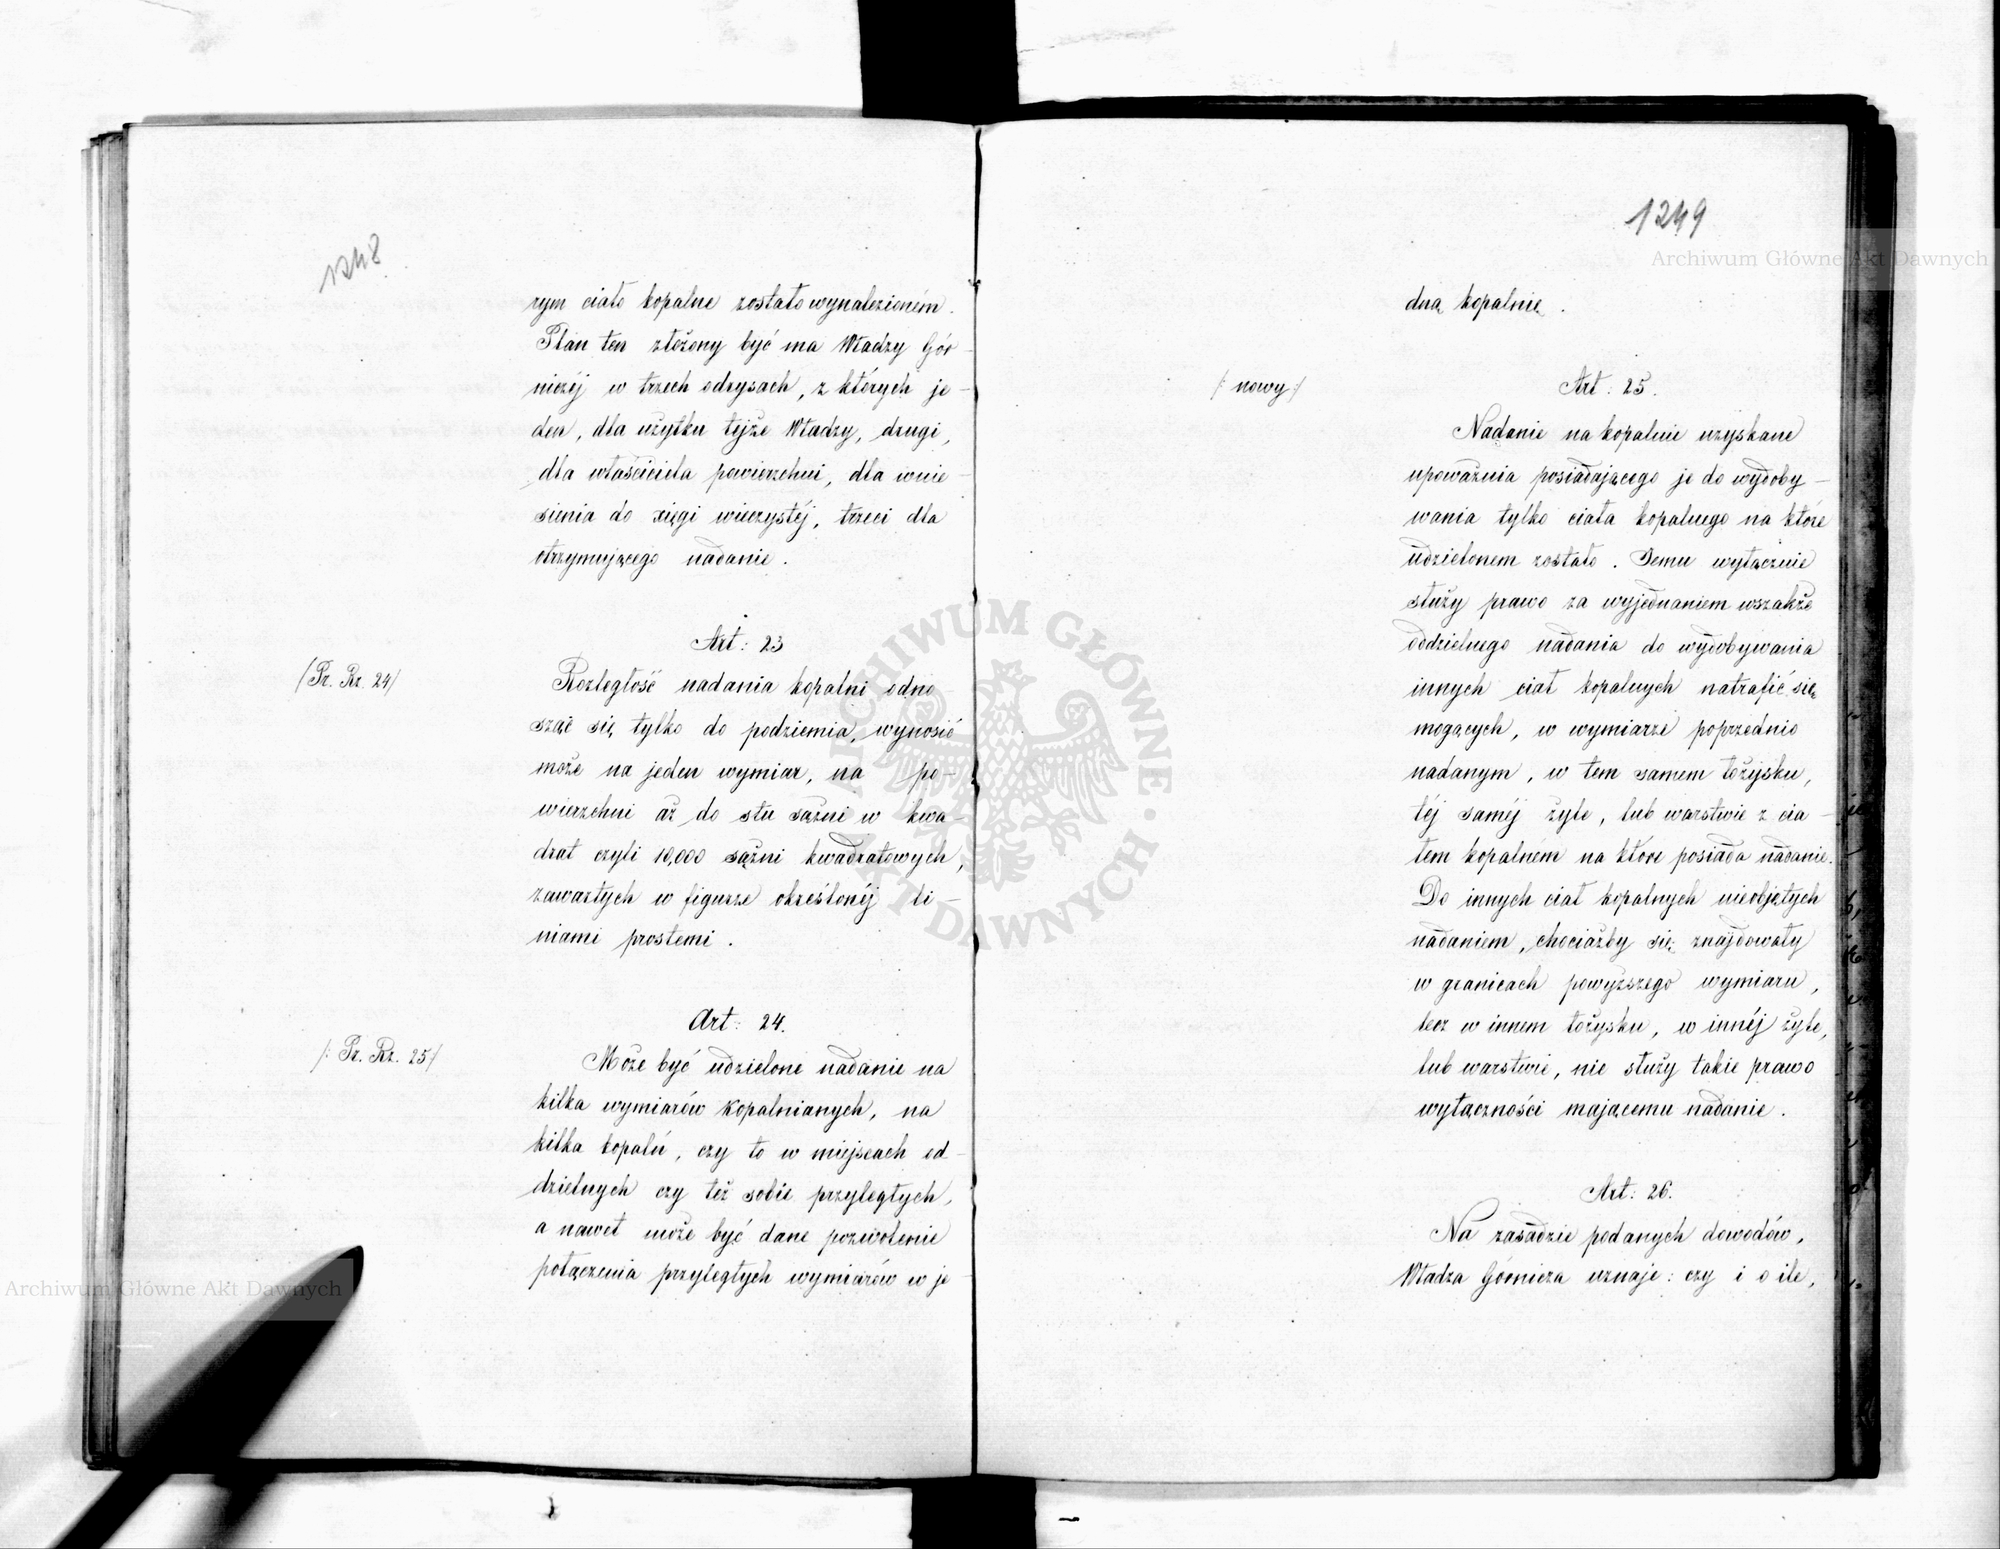 1248
rym ciało kopalne zostało wynalezioném.
Plan ten złożony być ma Władzy Gór-
niczéj w trzech odrysach, z których je-
den, dla użytku tejże Władzy, drugi,
dla właściciela powierzchni, dla wnie-
sienia do xięgi wieczystéj, trzeci dla
otrzymującego nadanie.
Art: 23
(Pr. Rz. 24/)
Rozległość nadania kopalni odno-
sząc się tylko do podziemia, wynosić
może na jeden wymiar, na po-
wierzchni aż do stu sążni w kwa-
drat czyli 10,000 sążni kwadratowych,
zawartych w figurze określonéj li-
niami prostemi.
Art: 24.
/: Pr. Rz. 25:/
Może być udzielone nadanie na
kilka wymiarów kopalnianych, na
kilka kopalń, czy to w miejscach od-
dzielnych czy też sobie przyległych,
a nawet może być dane pozwolenie
połączenia przyległych wymiarów w je
1249
dną kopalnię.
/: nowy:/
Art: 25.
Nadanie na kopalnie uzyskane
upoważnia posiadającego je do wydoby-
wania tylko ciała kopalnego na które
udzielonem zostało. Jemu wyłącznie
służy prawo za wyjednaniem wszakże
oddzielnego nadania do wydobywania
innych ciał kopalnych natrafić się
mogących, w wymiarze poprzednio
nadanym, w tem samem łożysku,
téj saméj żyle, lub warstwie z cia-
łem kopalném na które posiada nadanie.
Do innych ciał kopalnych nieobjętych
nadaniem, chociażby się znajdowały
w granicach powyższego wymiaru,
lecz w innem łożysku, w innéj żyle,
lub warstwie, nie służy takie prawo
wyłączności mającemu nadanie.
Art: 26.
Na zasadzie podanych dowodów,
Władza Górnicza uznaje: czy i o ile,
Archiwum Główne Akt Dawnych
Archiwum Główne Akt Dawnych
ARCHIWUM GŁÓWNE AKT DAWNYCH